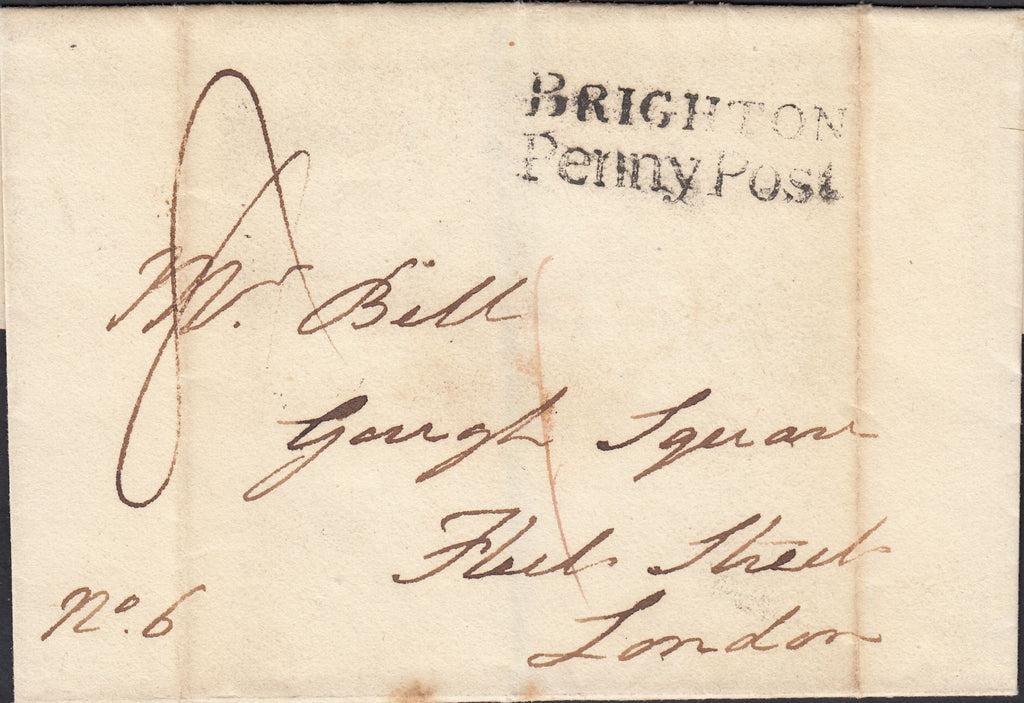 BRIGHTON
Penny Post
8
Mr. Bell
Gough Square
Fleet Street
London
No. 6